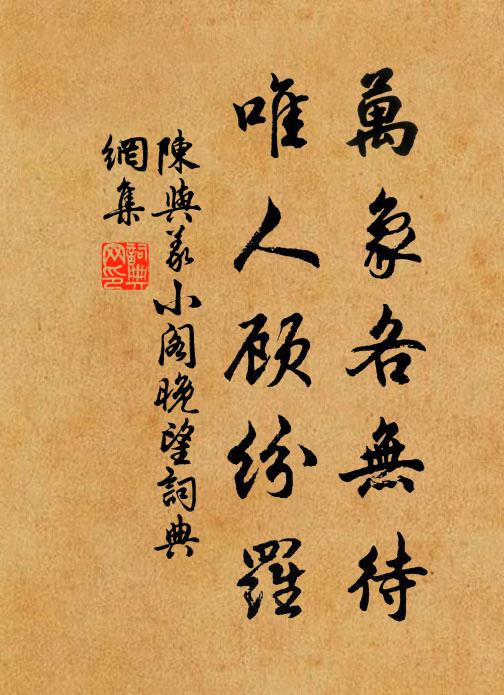 萬象各無待
唯人顧紛羅
陳與義小閣晚望詞典
網集
詞典
网印